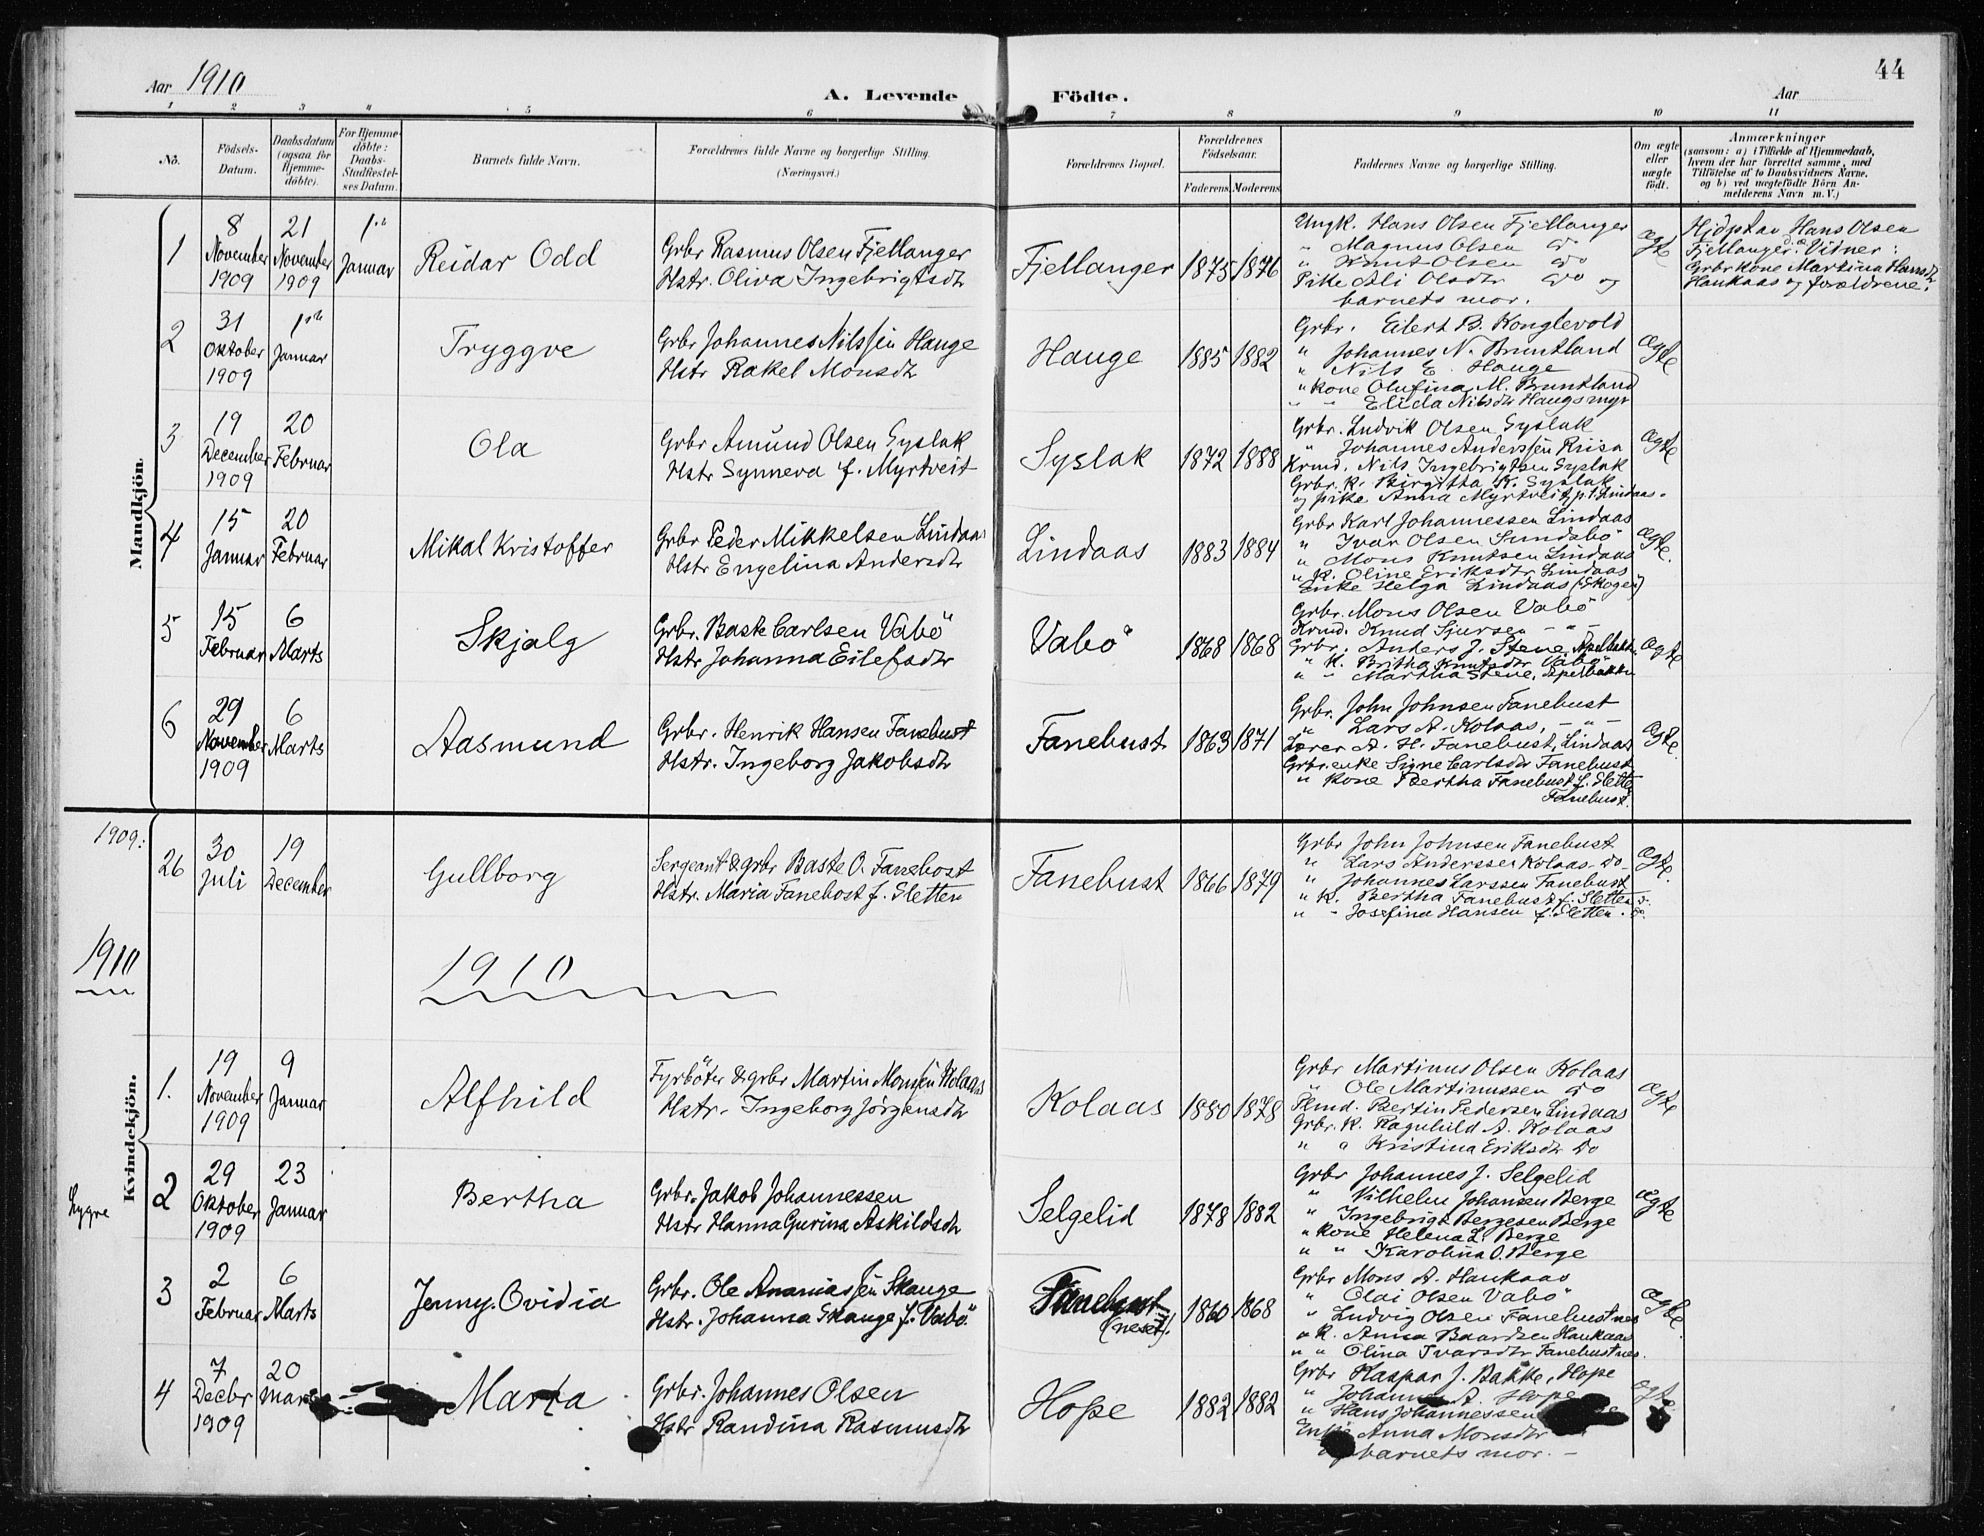 44
Aar 1910
A. Levende Födte.
Aar
1 2 3 4 5 6 7 8 9 10 11
No.
Födsels-Datum.
Daabsdatum (ogsaa for Hjemme-döbte).
For Hjemme-döbte: Daabs-Stadfæstel-ses Datum.
Barnets fulde Navn.
Forældrenes fulde Navne og borgerlige Stilling. (Næringsvei.)
Forældrenes Bopæl.
Forældrenes Födselsaar.
Faderens. Moderens.
Faddernes Navne og borgerlige Stilling.
Om ægte eller uægte födt.
Anmærkninger
(saasom: a) i Tilfælde af Hjemmedaab, hvem der har forrettet samme, med Tilföielse af to Daabsvidners Navne, og b) ved uægtefödte Börn An-melderens Navn m. V.)
Mandkjön.
1
8 November 1909
21 November 1909
1ste Januar
Reidar Odd
Grbr Rasmus Olsen Fjellanger
Hstr. Oliva Ingebrigtsdtr
Fjellanger
1875 1876
Ungk. Hans Olsen Fjellanger
" Magnus Olsen do
" Knut Olsen do
Pike Ali Olsdtr do og
barnets mor.
Ægte
Hjdpt av Hans Olsen
Fjellanger. Vidner:
Grbrkone Martina Hansdtr
Haukaas og forældrene.
2
31 Oktober 1909
1ste Januar
Tryggve
Grbr Johannes Nilssen Hauge
Hstr Rakel Monsdtr
Hauge
1885 1882
Grbr. Eilert B. Konglevold
" Johannes N. Bruntland
" Nils E. Hauge
" kone Olufina M. Bruntland
" " Elida Nilsdtr Haugsmyr
Ægte
3
19 December 1909
20 Februar
Ola
Grbr Amund Olsen Syslak
Hstr Synneva f. Myrtveit
Syslak
1872 1888
Grbr. Ludvik Olsen Syslak
" Johannes Anderssen Risa
Krmd. Nils Ingebrigtsen Syslak
Grbr. k. Birgitha K. Syslak
og pike Anna Myrtveit, p.t. Lindaas.
Ægte
4
15 Januar
20 Februar
Mikal Kristoffer
Grbr Peder Mikkelsen Lindaas
Hstr Engelina Andersdtr
Lindaas
1883 1884
Grbr Karl Johannessen Lindaas
" Ivar Olsen Sundsbö
" Mons Knutsen Lindaas
" k. Oline Eriksdtr Lindaas
Enke Helga Lindaas (Skogen)
Ægte.
5
15 Februar
6 Marts
Skjalg
Grbr. Baste Carlsen Vabö
Hstr Johanna Eilefsdtr
Vabö
1868 1868
Grbr. Mons Olsen Vabö
Krmd. Knud Sjursen - " -
Grbr. Anders J. Stene, Apelbakkn
" k. Britha Knutsdtr Vabö
" " Martha Stene, Apelbakkn
Ægte
6
29 November 1909
6 Marts
Aasmund
Grbr. Henrik Hansen Fanebust
Hstr. Ingeborg Jakobsdtr
Fanebust
1863 1871
Grbr. John Johnsen Fanebust
" Lars A. Kolaas, - " -
Lærer A. H. Fanebust, Lindaas
Grbr.enke Signe Carlsdtr Fanebust
" kone Bertha Fanebust f. Sletten
Fanebust.
Ægte.
1909:
26
30 Juli
19 December
Gullborg
Sergeant & grbr Baste O. Fanebost
Hstr. Maria Fanebost f. Sletten
Fanebust
1866 1879
Grbr John Johnsen Fanebust
" Lars Anderssen Kolaas do
" Johannes Larssen Fanebust
" k. Bertha Fanebust f. Sletten do.
" " Josefina Hansen f. Sletten. do.
Ægte.
1910
1910
Kvindekjön.
1.
19 November 1909
9 Januar
Alfhild
Fyrböter & grbr Martin Monsen Kolaas
Hstr. Ingeborg Jørgensdtr
Kolaas
1880 1878
Grbr Martinus Olsen Kolaas
" Ole Martinussen do
Pkmd. Bertin Pedersen Lindaas
Grbr. k. Ragnhild A. Kolaas
" " Kristina Eriksdtr do
Ægte
Lygre
2
29 Oktober 1909
23 Januar
Bertha
Grbr. Jakob Johannessen
Hstr Hanna Gurina Askildsdtr
Selgelid
1878 1882
Grbr Johannes J. Selgelid
" Vilhelm Johansen Berge
" Ingebrigt Bergesen Berge
" kone Helena L. Berge
" " Karolina O. Berge
Ægte
3
2 Februar
6 Marts
Jenny Ovidia
Grbr. Ole Ananiassen Skauge
Hstr. Johanna Skauge f. Vabö
Fanebust (neset).
1860 1868
Grbr Mons A. Haukaas
" Olai Olsen Vabö
" Ludvig Olsen Fanebustnes
" k. Anna Baardsen Haukaas
" " Olina Ivarsdtr Fanebustnes.
Ægte.
4
7 Decbr 1909
20 Marts
Marta
Grbr. Johannes Olsen
Hstr Randina Rasmusdtr
Hope
1882 1882
Grbr Kaspar J. Bakke, Hope
" Johannes A. Hope
" Hans Johannessen
Enke Anna Monsdtr
og barnets mor. -
Ægte